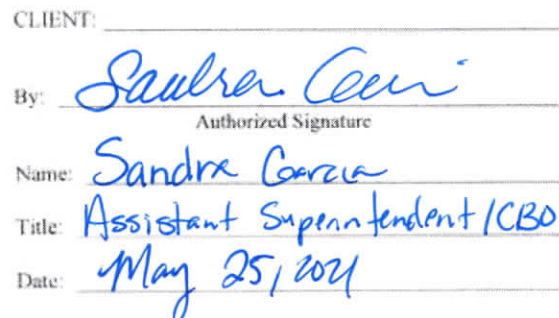 CLIENT:
By: Sandra Garcia
Authorized Signature
Name: Sandra Garcia
Title: Assistant Superintendent/CBO
Date: May 25, 2021